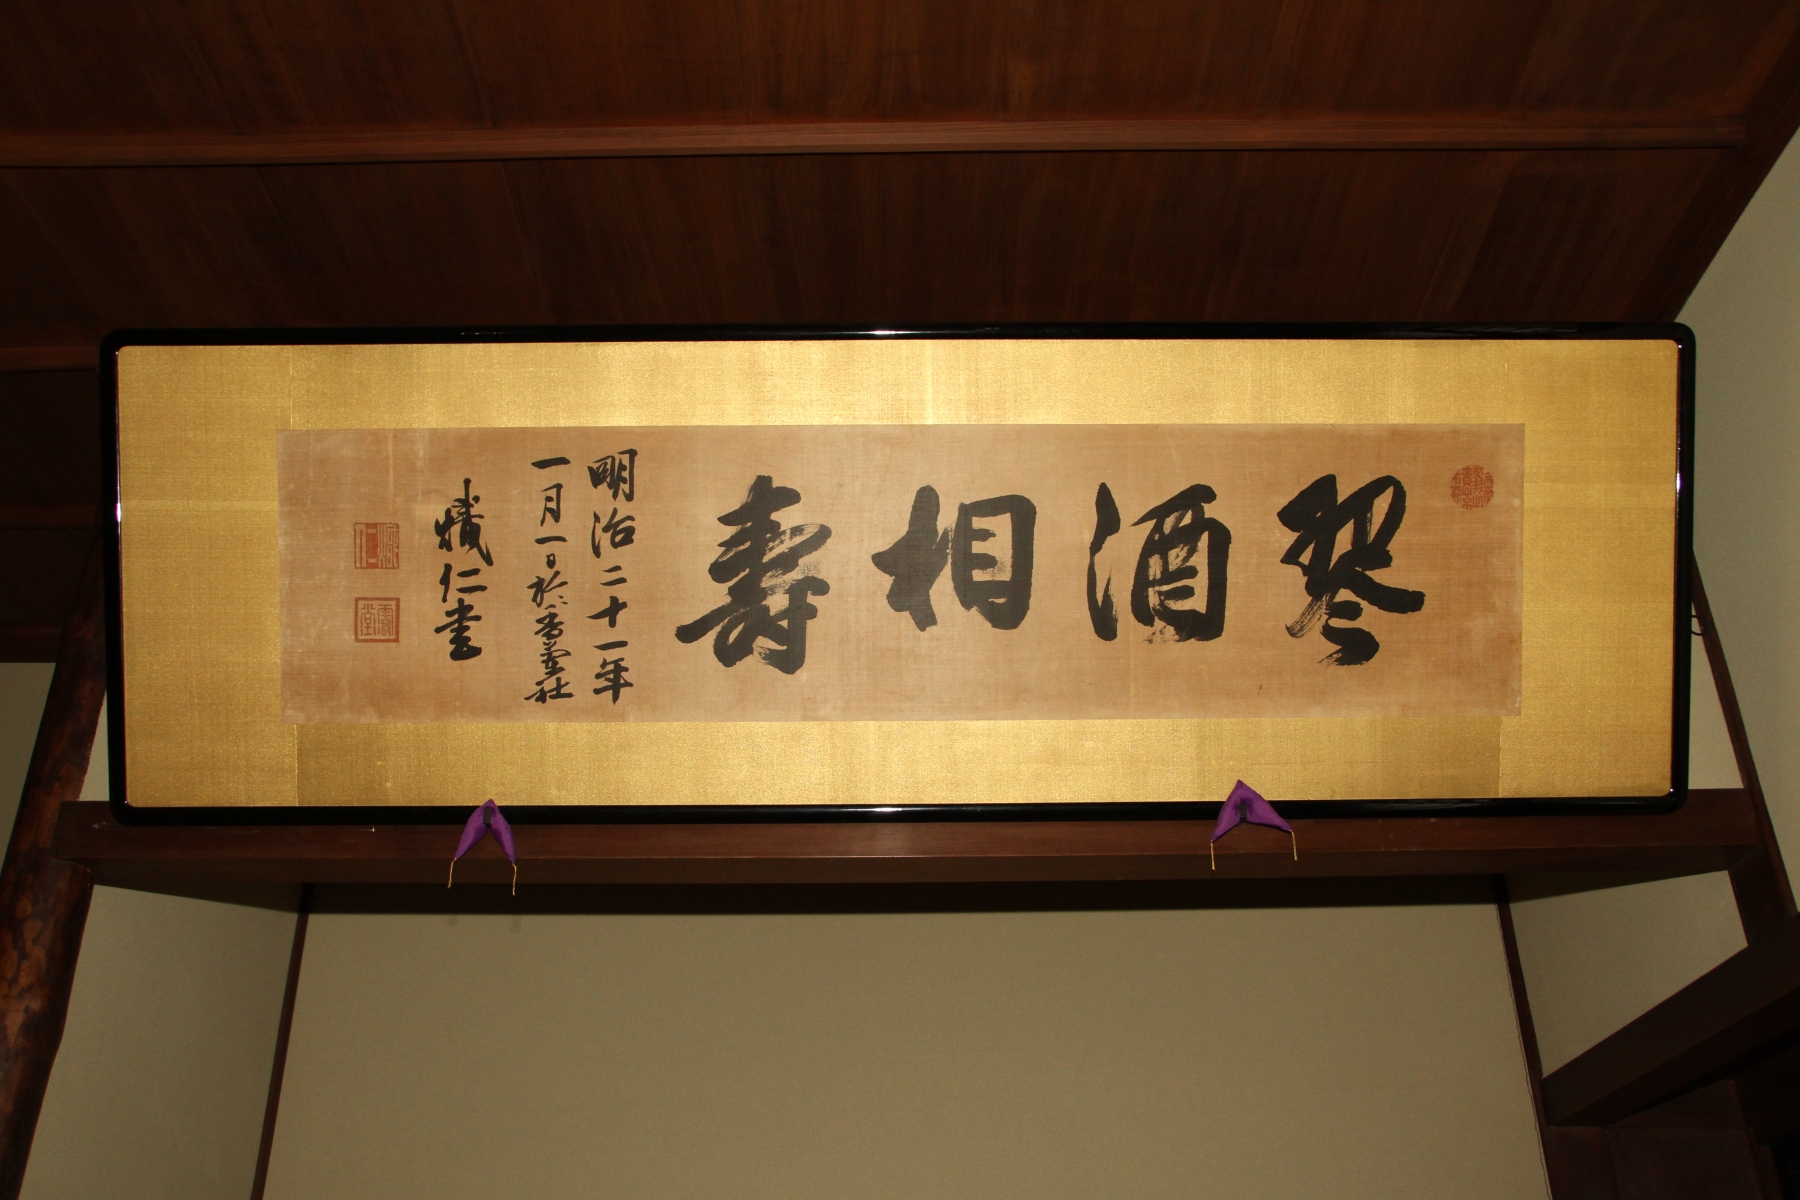 琴酒相壽
明治二十一年
一月一日於香蘭社
熾仁書